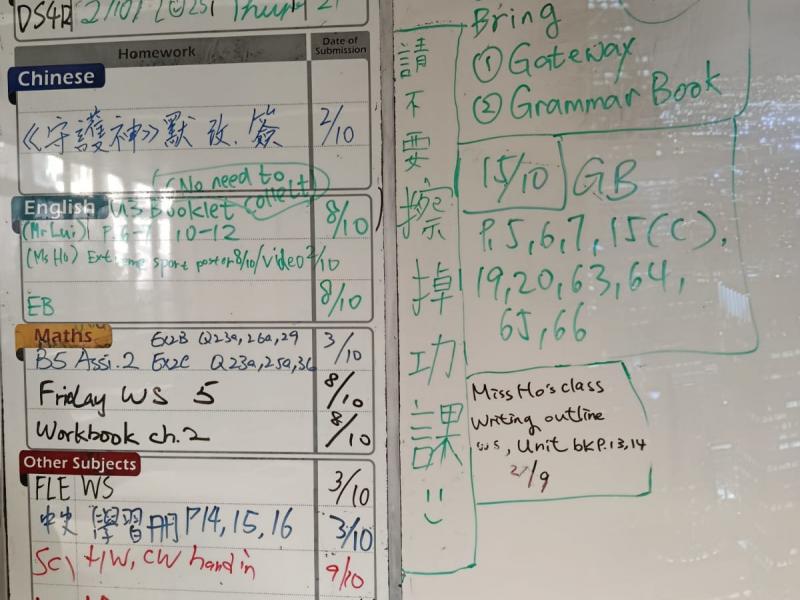 DS4B 2/10/2025 Thur 21
Homework
Date of Submission
Chinese
《守護神》默 改.簽 2/10
(No need to collect)
English G3 Booklet 8/10
(Mr Lui) P.6-7 10-12
(Ms Ho) Extreme sport poster 8/10/Video 2/10
EB 8/10
Maths Ex2B Q23a,26a,29 3/10
B5 Assi.2 Ex2C Q23a,25a,36
Friday WS 5 8/10
Workbook ch.2 8/10
Other Subjects
FLE WS 3/10
中史 學習冊 P14,15,16 3/10
Sci HW, CW hand in 9/10
請不要擦掉功課
Bring
① Gateway
② Grammar Book
15/10 GB
P.5,6,7,15(C),
19,20,63,64,
65,66
Miss Ho's class
Writing outline
WS, Unit bk P.13,14
/9